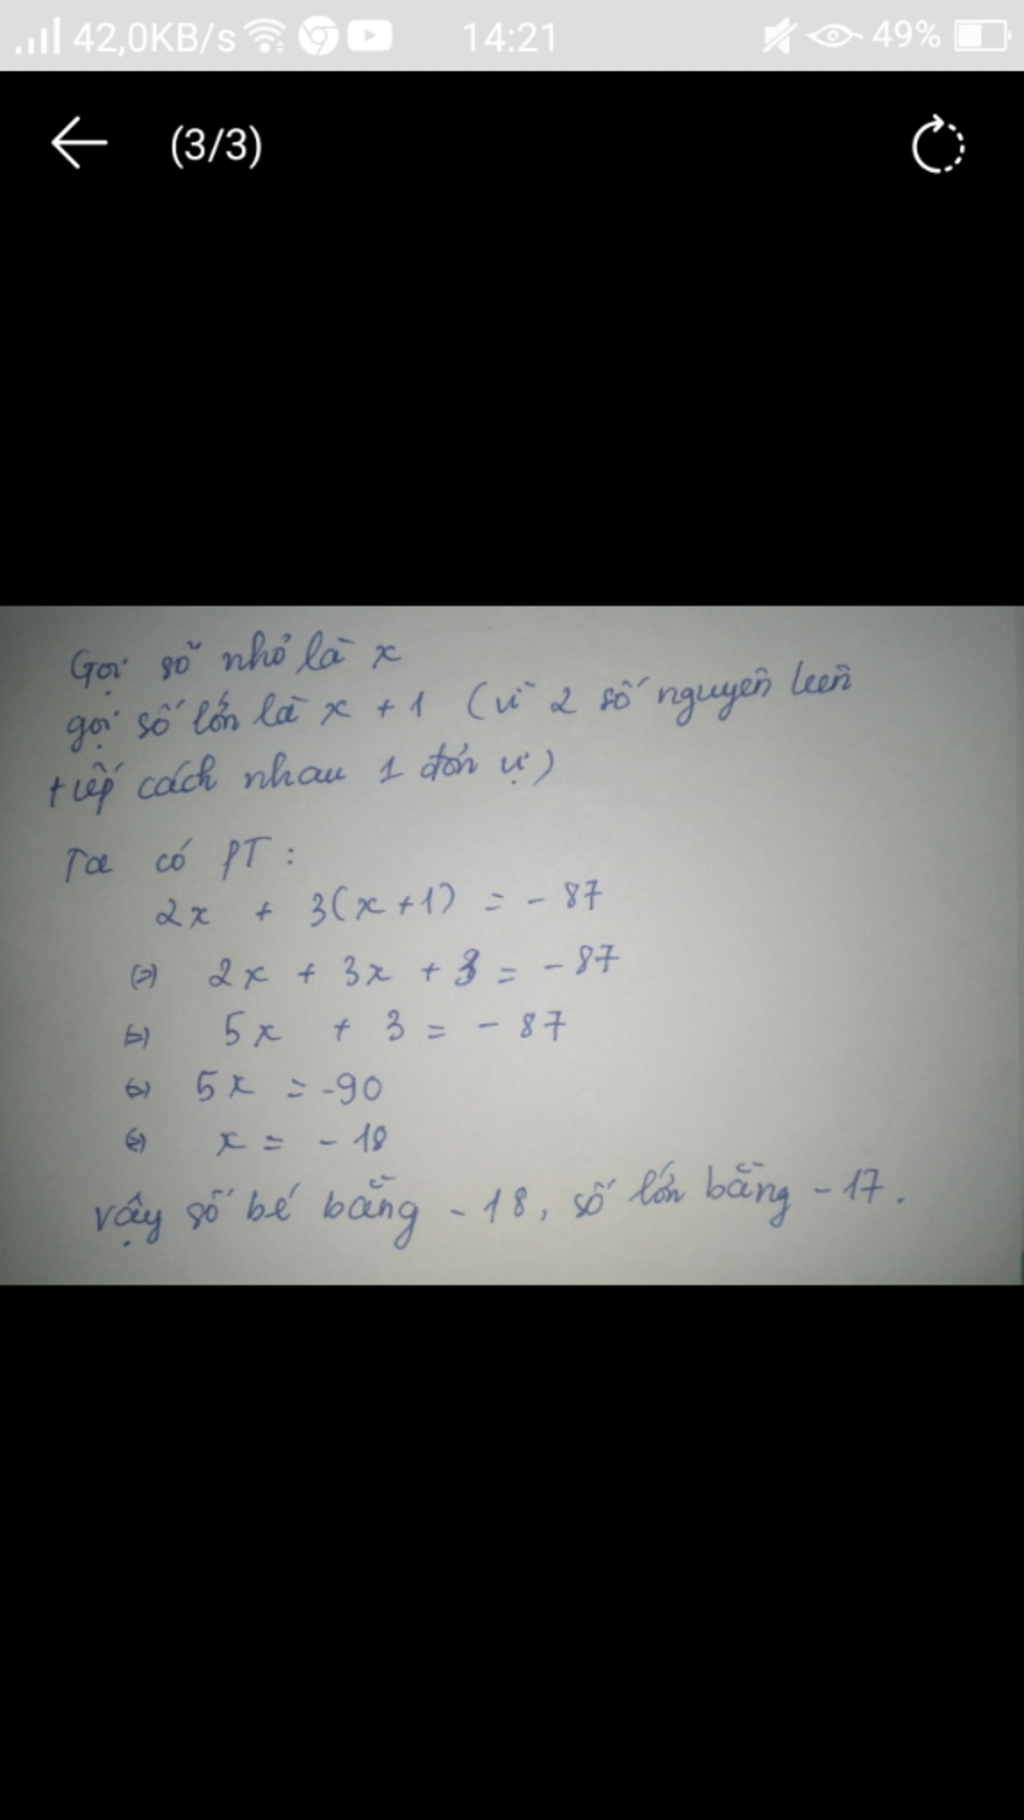 42,0KB/s 14:21 49%
(3/3)
Gọi số nhỏ là x
gọi số lớn là x + 1 (vì 2 số nguyên liên
tiếp cách nhau 1 đơn vị)
Ta có PT:
2x + 3(x+1) = - 87
(=) 2x + 3x + 3 = - 87
(=) 5x + 3 = - 87
(=) 5x = -90
(=) x = - 18
vậy số bé bằng - 18, số lớn bằng - 17.